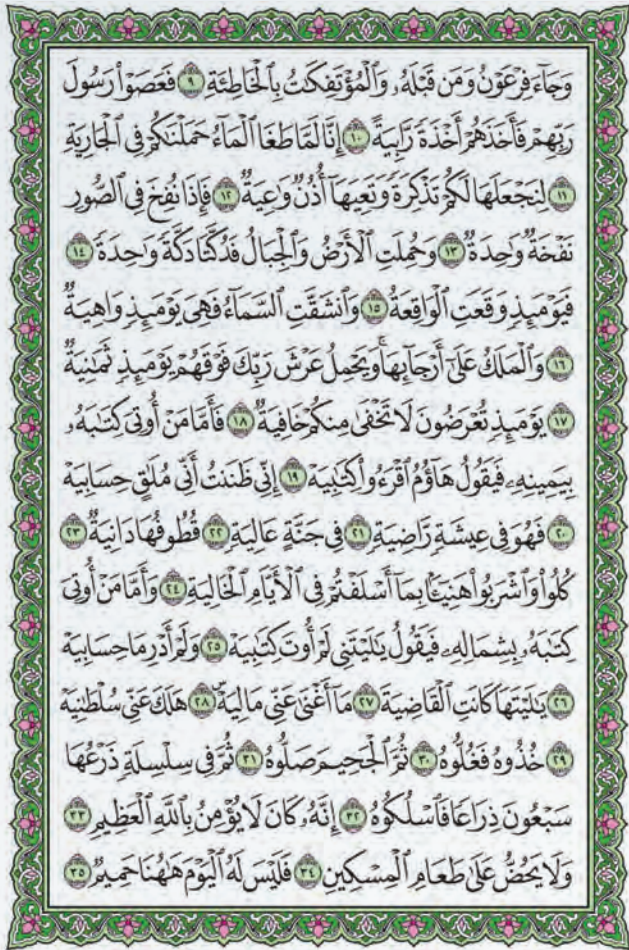 وَجَآءَ فِرْعَوْنُ وَمَن قَبْلَهُۥ وَٱلْمُؤْتَفِكَٰتُ بِٱلْخَاطِئَةِ ٩ فَعَصَوْا۟ رَسُولَ
رَبِّهِمْ فَأَخَذَهُمْ أَخْذَةً رَّابِيَةً ١٠ إِنَّا لَمَّا طَغَا ٱلْمَآءُ حَمَلْنَٰكُمْ فِى ٱلْجَارِيَةِ
١١ لِنَجْعَلَهَا لَكُمْ تَذْكِرَةً وَتَعِيَهَآ أُذُنٌ وَٰعِيَةٌ ١٢ فَإِذَا نُفِخَ فِى ٱلصُّورِ
نَفْخَةٌ وَٰحِدَةٌ ١٣ وَحُمِلَتِ ٱلْأَرْضُ وَٱلْجِبَالُ فَدُكَّتَا دَكَّةً وَٰحِدَةً ١٤
فَيَوْمَئِذٍ وَقَعَتِ ٱلْوَاقِعَةُ ١٥ وَٱنشَقَّتِ ٱلسَّمَآءُ فَهِىَ يَوْمَئِذٍ وَاهِيَةٌ
١٦ وَٱلْمَلَكُ عَلَىٰٓ أَرْجَآئِهَا ۚ وَيَحْمِلُ عَرْشَ رَبِّكَ فَوْقَهُمْ يَوْمَئِذٍ ثَمَٰنِيَةٌ
١٧ يَوْمَئِذٍ تُعْرَضُونَ لَا تَخْفَىٰ مِنكُمْ خَافِيَةٌ ١٨ فَأَمَّا مَنْ أُوتِىَ كِتَٰبَهُۥ
بِيَمِينِهِۦ فَيَقُولُ هَآؤُمُ ٱقْرَءُوا۟ كِتَٰبِيَهْ ١٩ إِنِّى ظَنَنتُ أَنِّى مُلَٰقٍ حِسَابِيَهْ
٢٠ فَهُوَ فِى عِيشَةٍ رَّاضِيَةٍ ٢١ فِى جَنَّةٍ عَالِيَةٍ ٢٢ قُطُوفُهَا دَانِيَةٌ ٢٣
كُلُوا۟ وَٱشْرَبُوا۟ هَنِيٓـًٔۢا بِمَآ أَسْلَفْتُمْ فِى ٱلْأَيَّامِ ٱلْخَالِيَةِ ٢٤ وَأَمَّا مَنْ أُوتِىَ
كِتَٰبَهُۥ بِشِمَالِهِۦ فَيَقُولُ يَٰلَيْتَنِى لَمْ أُوتَ كِتَٰبِيَهْ ٢٥ وَلَمْ أَدْرِ مَا حِسَابِيَهْ
٢٦ يَٰلَيْتَهَا كَانَتِ ٱلْقَاضِيَةَ ٢٧ مَآ أَغْنَىٰ عَنِّى مَالِيَهْ ۜ ٢٨ هَلَكَ عَنِّى سُلْطَٰنِيَهْ
٢٩ خُذُوهُ فَغُلُّوهُ ٣٠ ثُمَّ ٱلْجَحِيمَ صَلُّوهُ ٣١ ثُمَّ فِى سِلْسِلَةٍ ذَرْعُهَا
سَبْعُونَ ذِرَاعًا فَٱسْلُكُوهُ ٣٢ إِنَّهُۥ كَانَ لَا يُؤْمِنُ بِٱللَّهِ ٱلْعَظِيمِ ٣٣
وَلَا يَحُضُّ عَلَىٰ طَعَامِ ٱلْمِسْكِينِ ٣٤ فَلَيْسَ لَهُ ٱلْيَوْمَ هَٰهُنَا حَمِيمٌ ٣٥